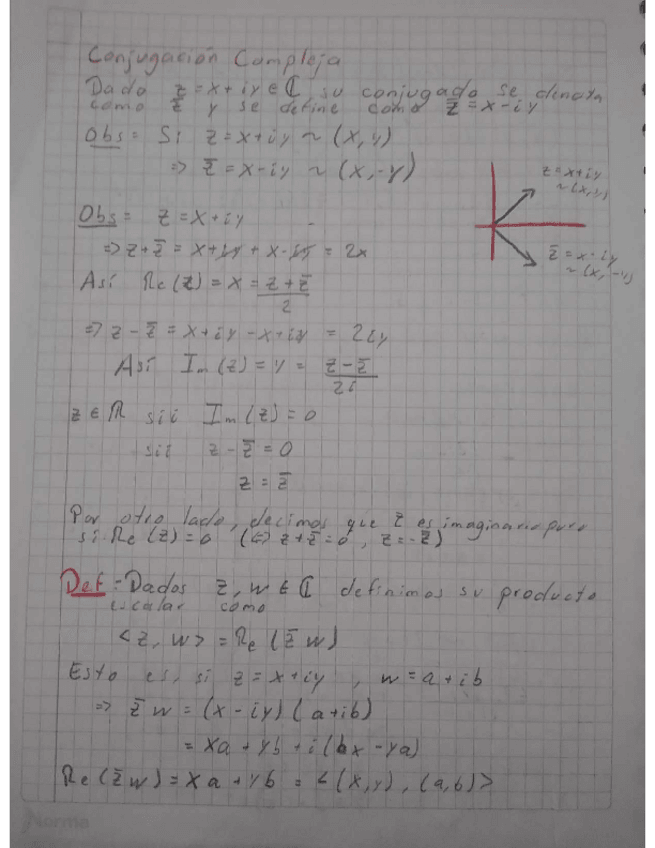 Conjugación Compleja
Dado z = x + iy ∈ ℂ, su conjugado se denota
como z̄ y se define como z̄ = x - iy
Obs = Si z = x + iy ~ (x, y)
⇒ z̄ = x - iy ~ (x, -y)
z = x + iy
~ (x, y)
z̄ = x - iy
~ (x, -y)
Obs = z = x + iy
⇒ z + z̄ = x + iy + x - iy = 2x
Así Re(z) = x = (z + z̄)/2
⇒ z - z̄ = x + iy - x + iy = 2iy
Así Im(z) = y = (z - z̄)/2i
z ∈ ℝ sii Im(z) = 0
sii z - z̄ = 0
z = z̄
Por otro lado, decimos que z es imaginario puro
si Re(z) = 0 (⇔ z + z̄ = 0, z = -z̄)
Def: Dados z, w ∈ ℂ definimos su producto
escalar como
<z, w> = Re(z̄ w)
Esto es, si z = x + iy, w = a + ib
⇒ z̄ w = (x - iy)(a + ib)
= xa + yb + i(bx - ya)
Re(z̄w) = xa + yb = <(x, y), (a, b)>
Norma